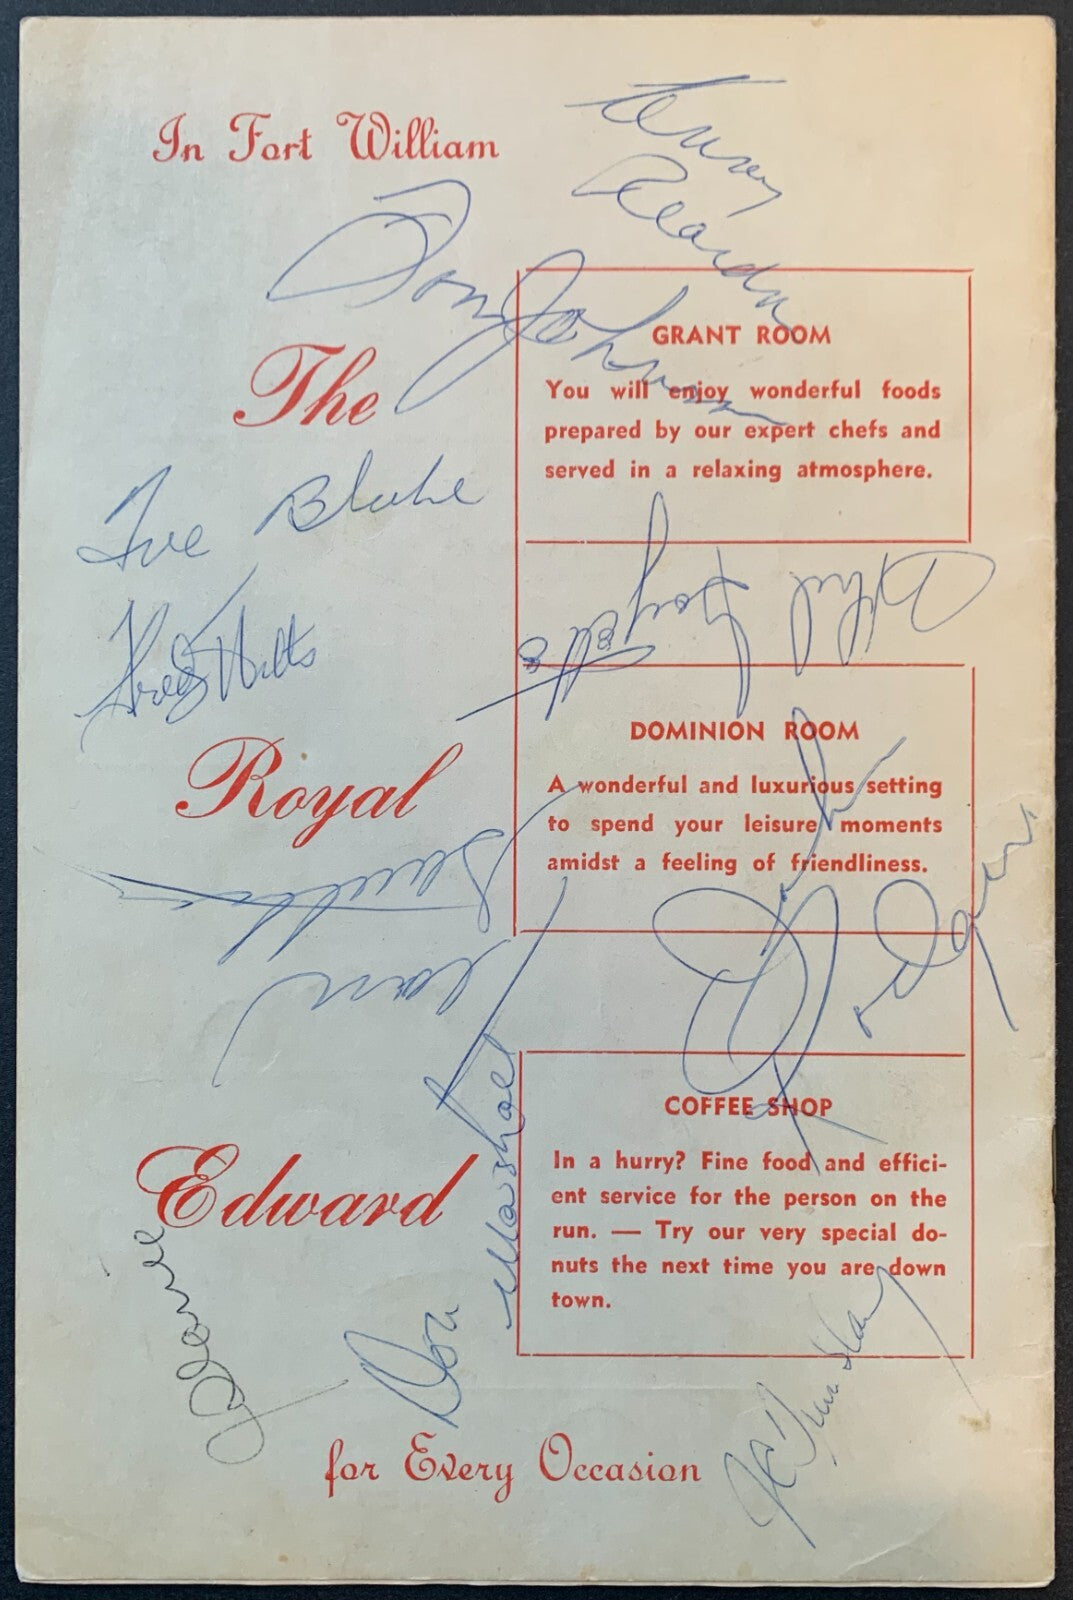 In Fort William
Kenny
Reardon
Tom Johnson
The
GRANT ROOM
You will enjoy wonderful foods
prepared by our expert chefs and
served in a relaxing atmosphere.
Toe Blake
Phil Goyette
Royal
DOMINION ROOM
A wonderful and luxurious setting
to spend your leisure moments
amidst a feeling of friendliness.
Jean
Don Marshall
Edward
COFFEE SHOP
In a hurry? Fine food and effici-
ent service for the person on the
run. — Try our very special do-
nuts the next time you are down
town.
for Every Occasion